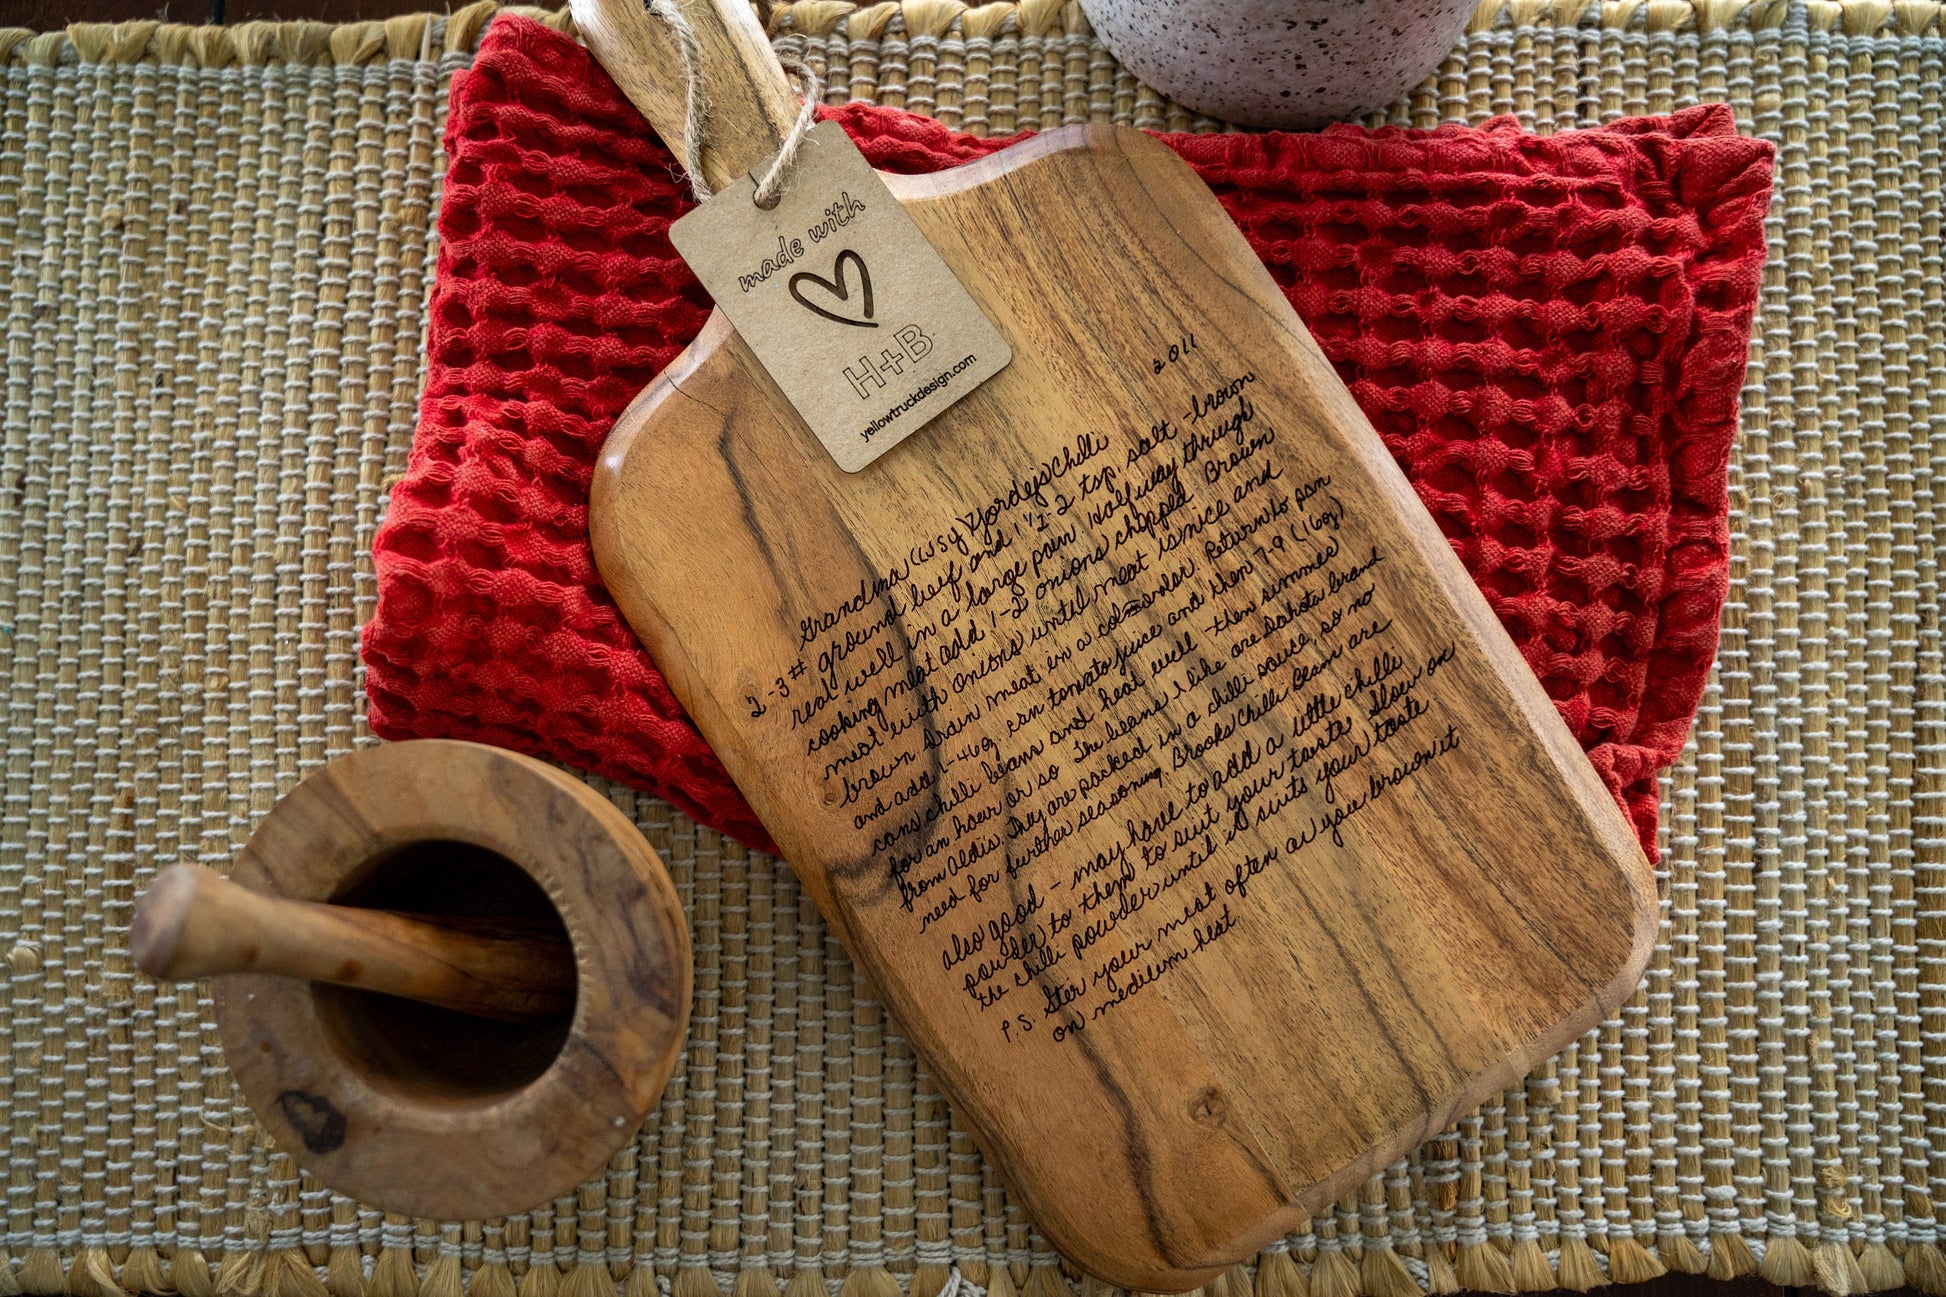 made with
H+B
yellowtruckdesign.com
2011
Grandma (WSY) Yordy's Chilli
2-3# ground beef and 1 1/2-2 tsp. salt - brown
real well in a large pan. Halfway through
cooking meat add 1-2 onions chopped. Brown
meat with onions until meat is nice and
brown. Drain meat in a colandar. Return to pan
and add 1-46oz. can tomato juice and then 7-9 (16oz)
cans chilli beans and heat well - then simmer
for an hour or so. The beans I like are Dakota brand
from Aldis. They are packed in a chilli sauce, so no
need for further seasoning. Brooks Chilli Beans are
also good - may have to add a little chilli
powder to them to suit your taste. Slow on
the chilli powder until it suits your taste.
P.S. Ster your meat often as you brown it
on medium heat.